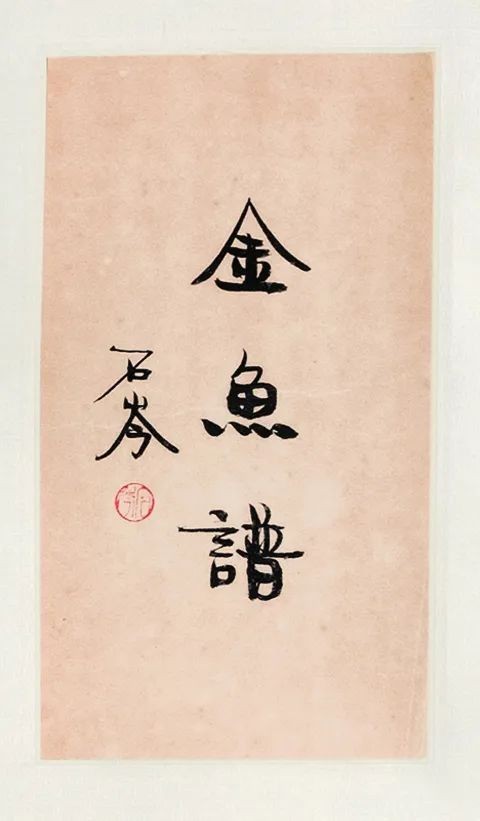 金魚譜
石岑